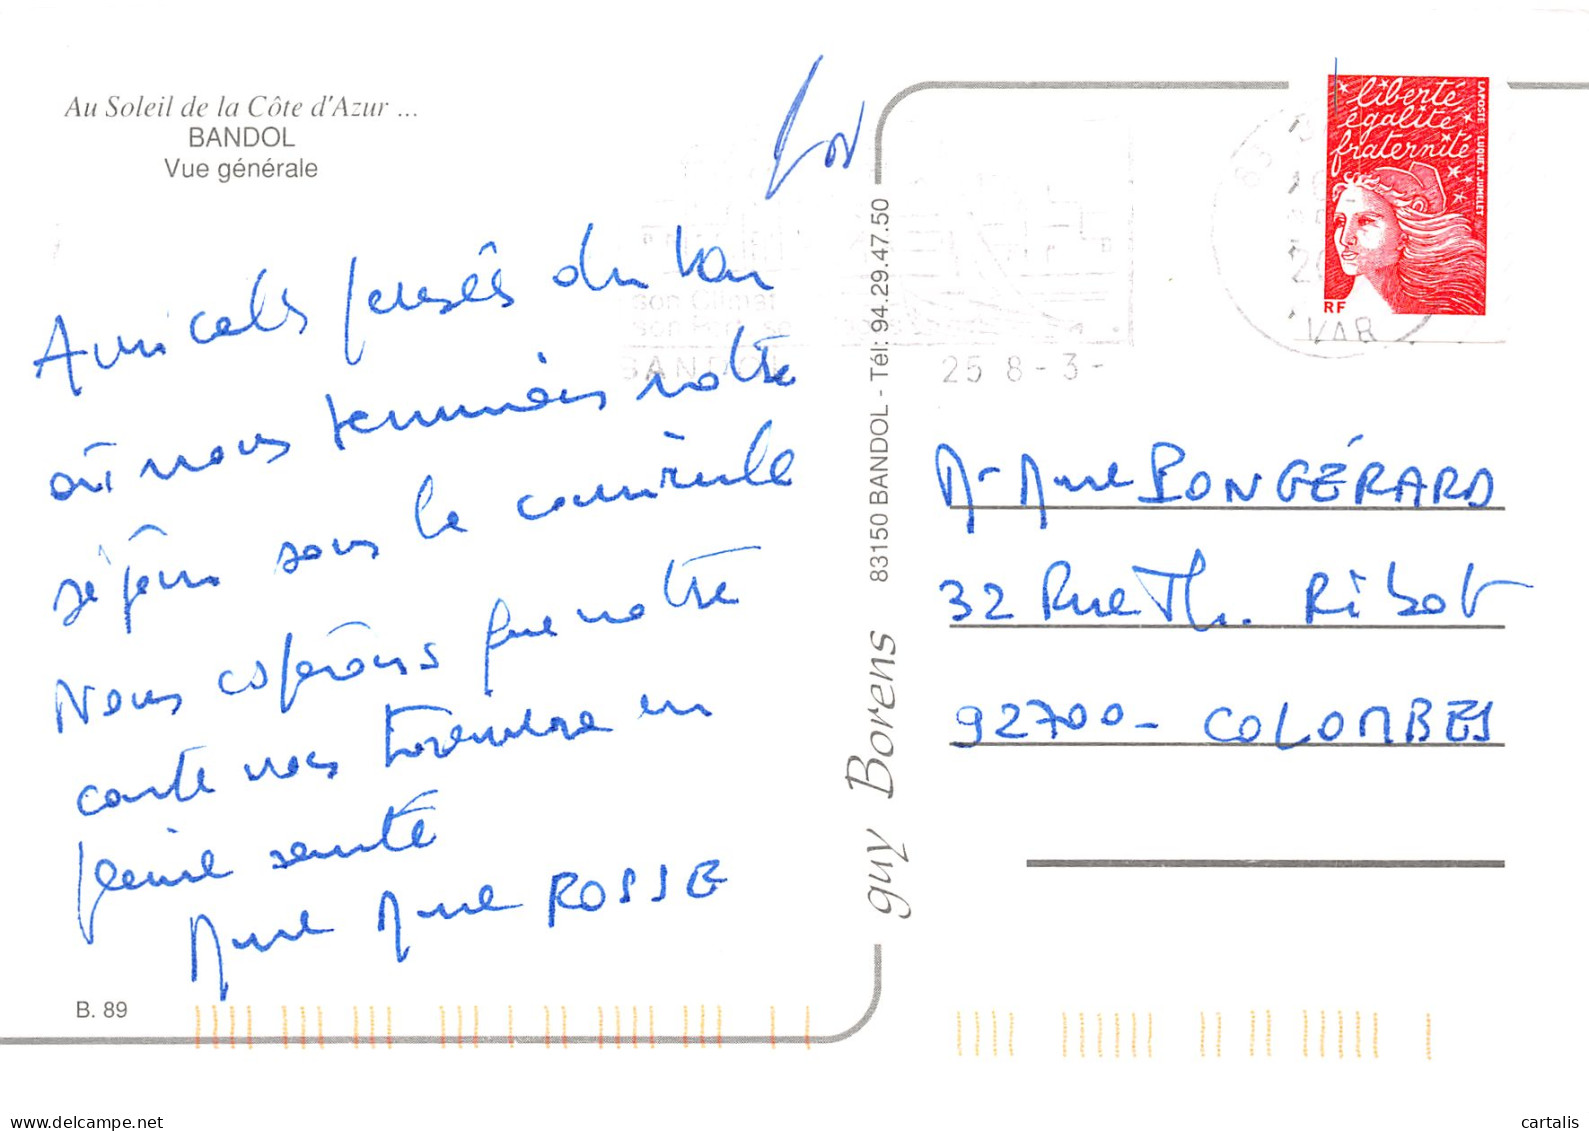 Au Soleil de la Côte d'Azur ...
BANDOL
Vue générale
Amicales pensées du Var
où nous terminons notre
séjour sous la canicule
Nous espérons que notre
carte vous trouvera en
pleine santé
Mme ROSSE
guy Borens 83150 BANDOL - Tél: 94.29.47.50
B. 89
liberté
égalité
fraternité
LA POSTE LUQUET. JUMELET
RF
VAR
son Climat
BANDOL
25 8 - 3 -
Mr Mme PONGÉRARD
32 Rue Th. Ribot
92700 - COLOMBES
www.delcampe.net
cartalis